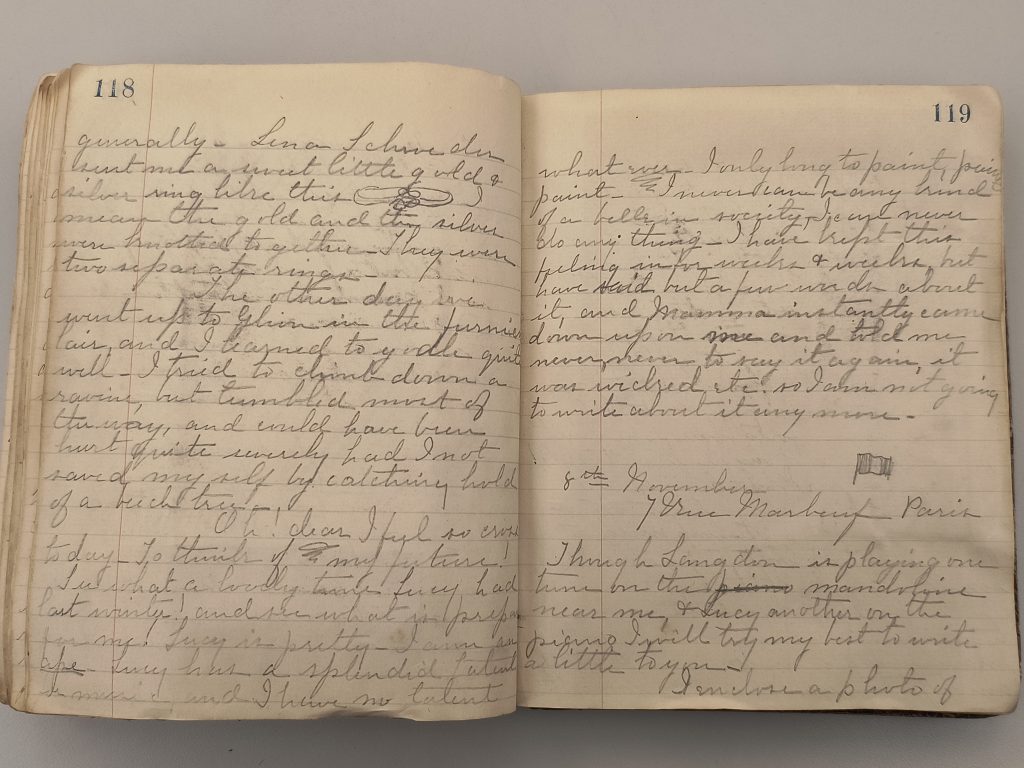 118
generally - Lena Schweder
sent me a sweet little gold &
silver ring like this
mean the gold and the silver
were knotted together. They were
two separate rings -
The other day we
went up to Glion in the funnic
lair, and I learned to yodle quite
well - I tried to climb down a
ravine, but tumbled most of
the way, and could have been
hurt quite severely had I not
saved my self by catching hold
of a beech tree -
Oh! dear I feel so cross
today - To think of my future!
See what a lovely time Lucy had
last winter! and see what is prepar
for me! Lucy is pretty - I am an
ape - Lucy has a splendid talent
music and I have no talent
119
what ever - I only long to paint, paint
paint - I never can be any kind
of a belle in society, I can never
do any thing - I have kept this
feeling in for weeks & weeks, but
have said but a few words about
it, and Mamma instantly came
down upon me and told me
never, never to say it again, it
was wicked etc. so I am not going
to write about it any more -
8th November
7 Rue Marbeuf Paris
Though Langdon is playing one
tune on the piano mandoline
near me, & Lucy another on the
piano I will try my best to write
a little to you -
I enclose a photo of